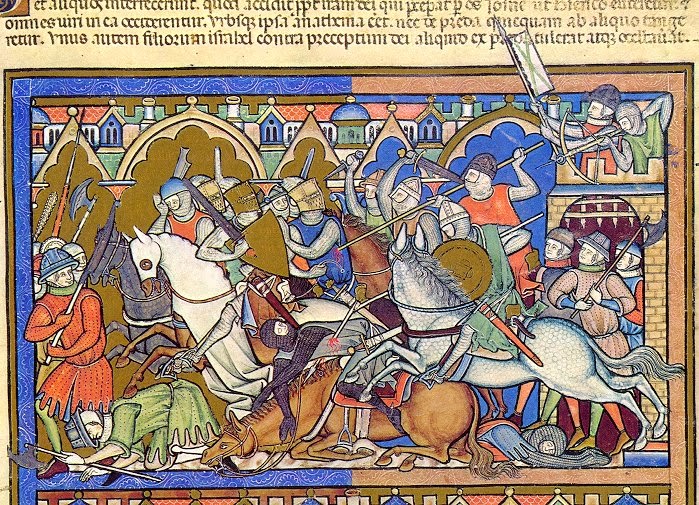 et aliquos interfecerunt. quod accidit dei qui per os Iosue ut
omnes uiri in ea occiderentur. Vrbsq; ipsa anathema eet. nec de preda quicquam ab aliquo tange
retur. Vnus autem filiorum israhel contra preceptum dei aliquid ex preda tulerat atq; celauerat